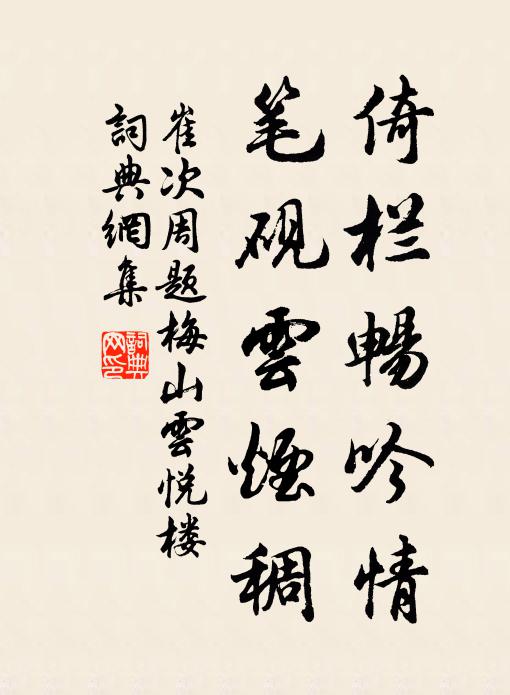 倚栏暢吟情
笔砚雲煙稠
崔次周题梅山雲悦楼
詞典網集
詞典网印